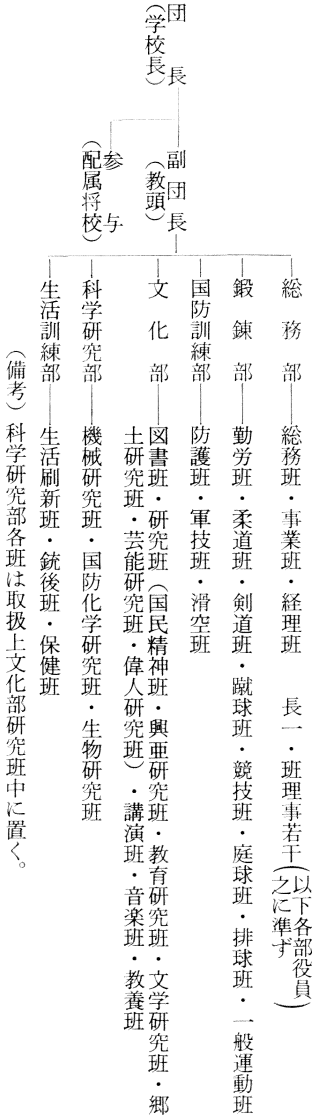 団長
（学校長）
副団長
（教頭）
参与
（配属将校）
総務部
総務班・事業班・経理班　長一・班理事若干（以下各部役員
之に準ず）
鍛錬部
勤労班・柔道班・剣道班・蹴球班・競技班・庭球班・排球班・一般運動班
国防訓練部
防護班・軍技班・滑空班
文化部
図書班・研究班（国民精神班・興亜研究班・教育研究班・文学研究班・郷
土研究班・芸能研究班・偉人研究班）・講演班・音楽班・教養班
科学研究部
機械研究班・国防化学研究班・生物研究班
生活訓練部
生活刷新班・銃後班・保健班
（備考）科学研究部各班は取扱上文化部研究班中に置く。